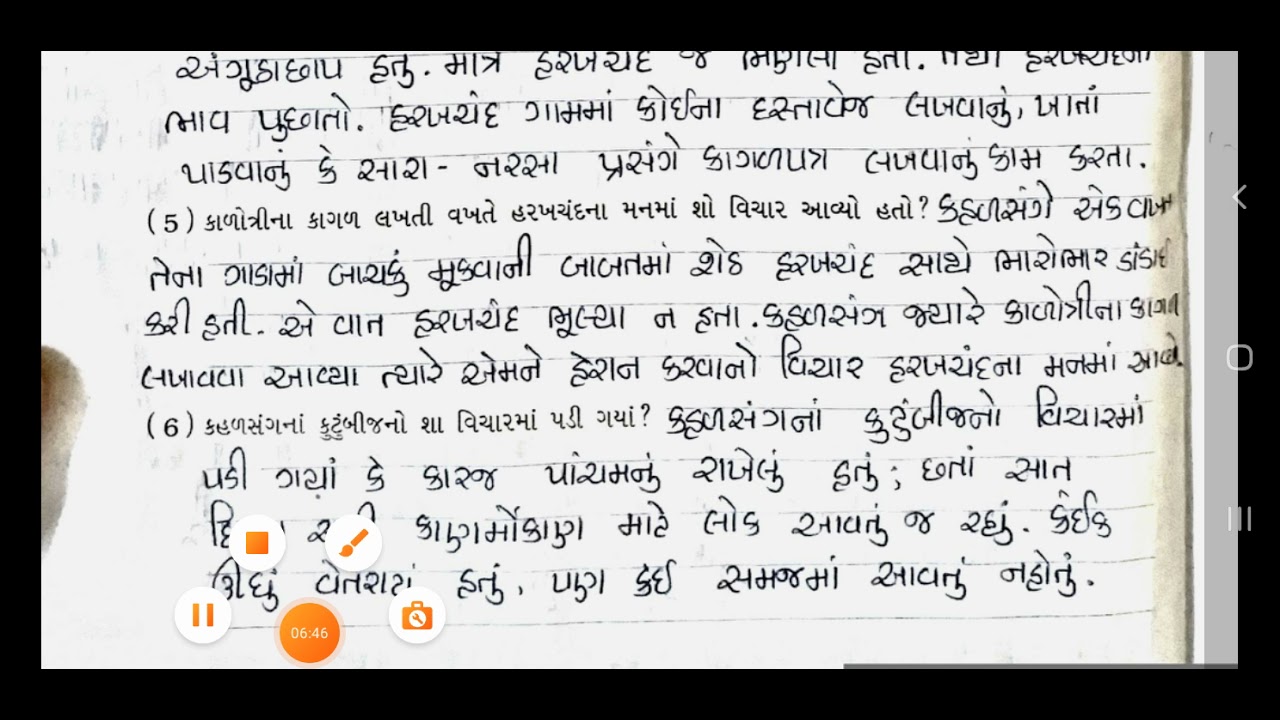 અંગૂઠાછાપ હતું. માત્ર હરખચંદ જ ભણેલા હતા. તેથી હરખચંદના
ભાવ પુછાતો. હરખચંદ ગામમાં કોઈના દસ્તાવેજ લખવાનું, ખાતાં
પાડવાનું કે સારા - નરસા પ્રસંગે કાગળપત્ર લખવાનું કામ કરતા.
(5) કાળોત્રીના કાગળ લખતી વખતે હરખચંદના મનમાં શો વિચાર આવ્યો હતો? કહળસંગે એક વાખ
તેના ગાડામાં બાચકું મૂકવાની બાબતમાં શેઠ હરખચંદ સાથે ભારોભાર ડાંડાઈ
કરી હતી. એ વાત હરખચંદ ભૂલ્યા ન હતા. કહળસંગ જ્યારે કાળોત્રીના કાગળ
લખાવવા આવ્યા ત્યારે એમને હેરાન કરવાનો વિચાર હરખચંદના મનમાં આવ્યો.
(6) કહળસંગનાં કુટુંબીજનો શા વિચારમાં પડી ગયાં? કહળસંગનાં કુટુંબીજનો વિચારમાં
પડી ગયાં કે કારજ પાંચમનું રાખેલું હતું; છતાં સાત
કાણમોંકાણ માટે લોક આવતું જ રહ્યું. કંઈક
ઊંધું વેતરાયું હતું, પણ કંઈ સમજમાં આવતું નહોતું.
06:46